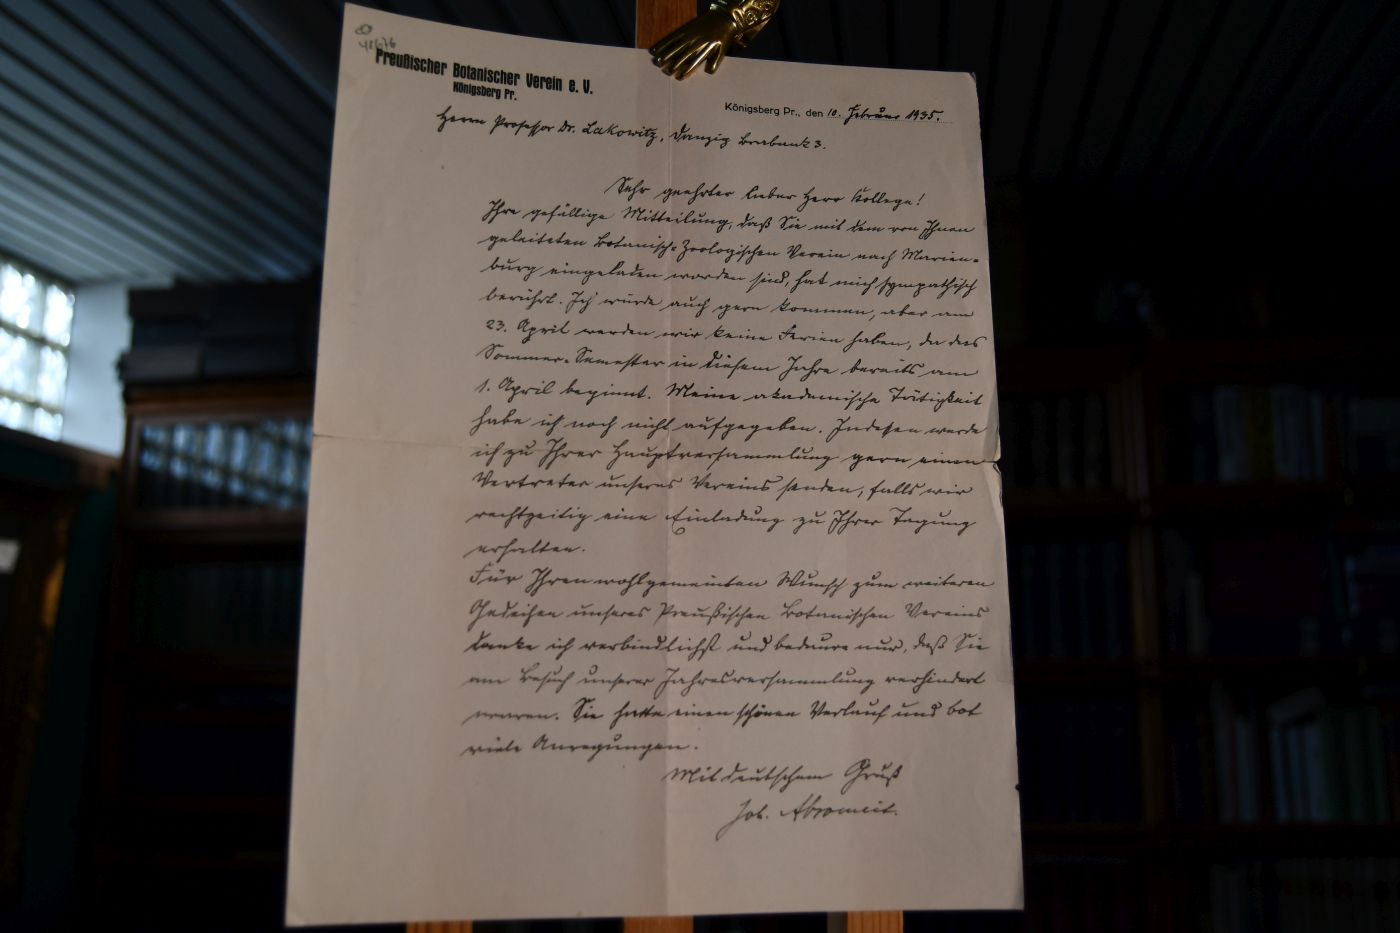 Preußischer Botanischer Verein e. V.
Königsberg Pr.
Königsberg Pr., den 10. Februar 1935.
Herrn Professor Dr. Lakowitz, Danzig Brabank 3.
Sehr geehrter lieber Herr Kollege!
Ihre gefällige Mitteilung, daß Sie mit dem von Ihnen
geleiteten Botanisch-Zoologischen Verein nach Marien-
burg eingeladen worden sind, hat mich sympathisch
berührt. Ich würde auch gern kommen, aber am
23. April werden wir keine Ferien haben, da das
Sommer-Semester in diesem Jahre bereits am
1. April beginnt. Meine akademische Tätigkeit
habe ich noch nicht aufgegeben. Indessen werde
ich zu Ihrer Hauptversammlung gern einen
Vertreter unseres Vereins senden, falls wir
rechtzeitig eine Einladung zu Ihrer Tagung
erhalten.
Für Ihren wohlgemeinten Wunsch zum weiteren
Gedeihen unseres Preußischen Botanischen Vereins
danke ich verbindlichst und bedaure nur, daß Sie
am Besuch unserer Jahresversammlung verhindert
waren. Sie hatte einen schönen Verlauf und bot
viele Anregungen.
Mit deutschem Gruß
Joh. Abromeit.